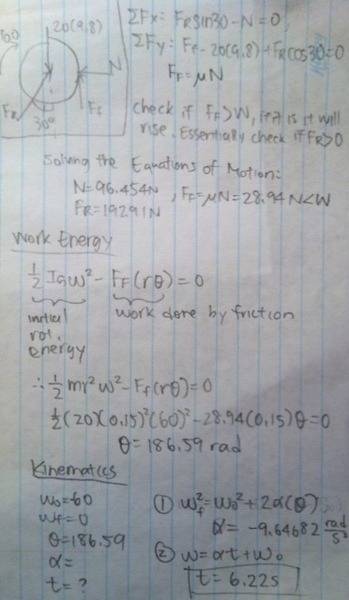 20(9.8)
60
N
FR
Ff
30°
ΣFx = FRsin30 - N = 0
ΣFy: Ff - 20(9.8) + FRcos30 = 0
FF = μN
check if FF > W, if it is it will
rise. Essentially check if FR > 0
Solving the Equations of Motion:
N = 96.454N , FF = μN = 28.94 N < W
FR = 192.91N
Work Energy
½ IGω² - FF(rθ) = 0
initial rot. energy
work done by friction
∴ ½ mr²ω² - Ff(rθ) = 0
½(20)(0.15)²(60)² - 28.94(0.15)θ = 0
θ = 186.59 rad
Kinematics
ω0 = 60
ωf = 0
θ = 186.59
α =
t = ?
① ωf² = ω0² + 2α(θ)
α = -9.64682 rad/s²
② ω = αt + ω0
t = 6.22s